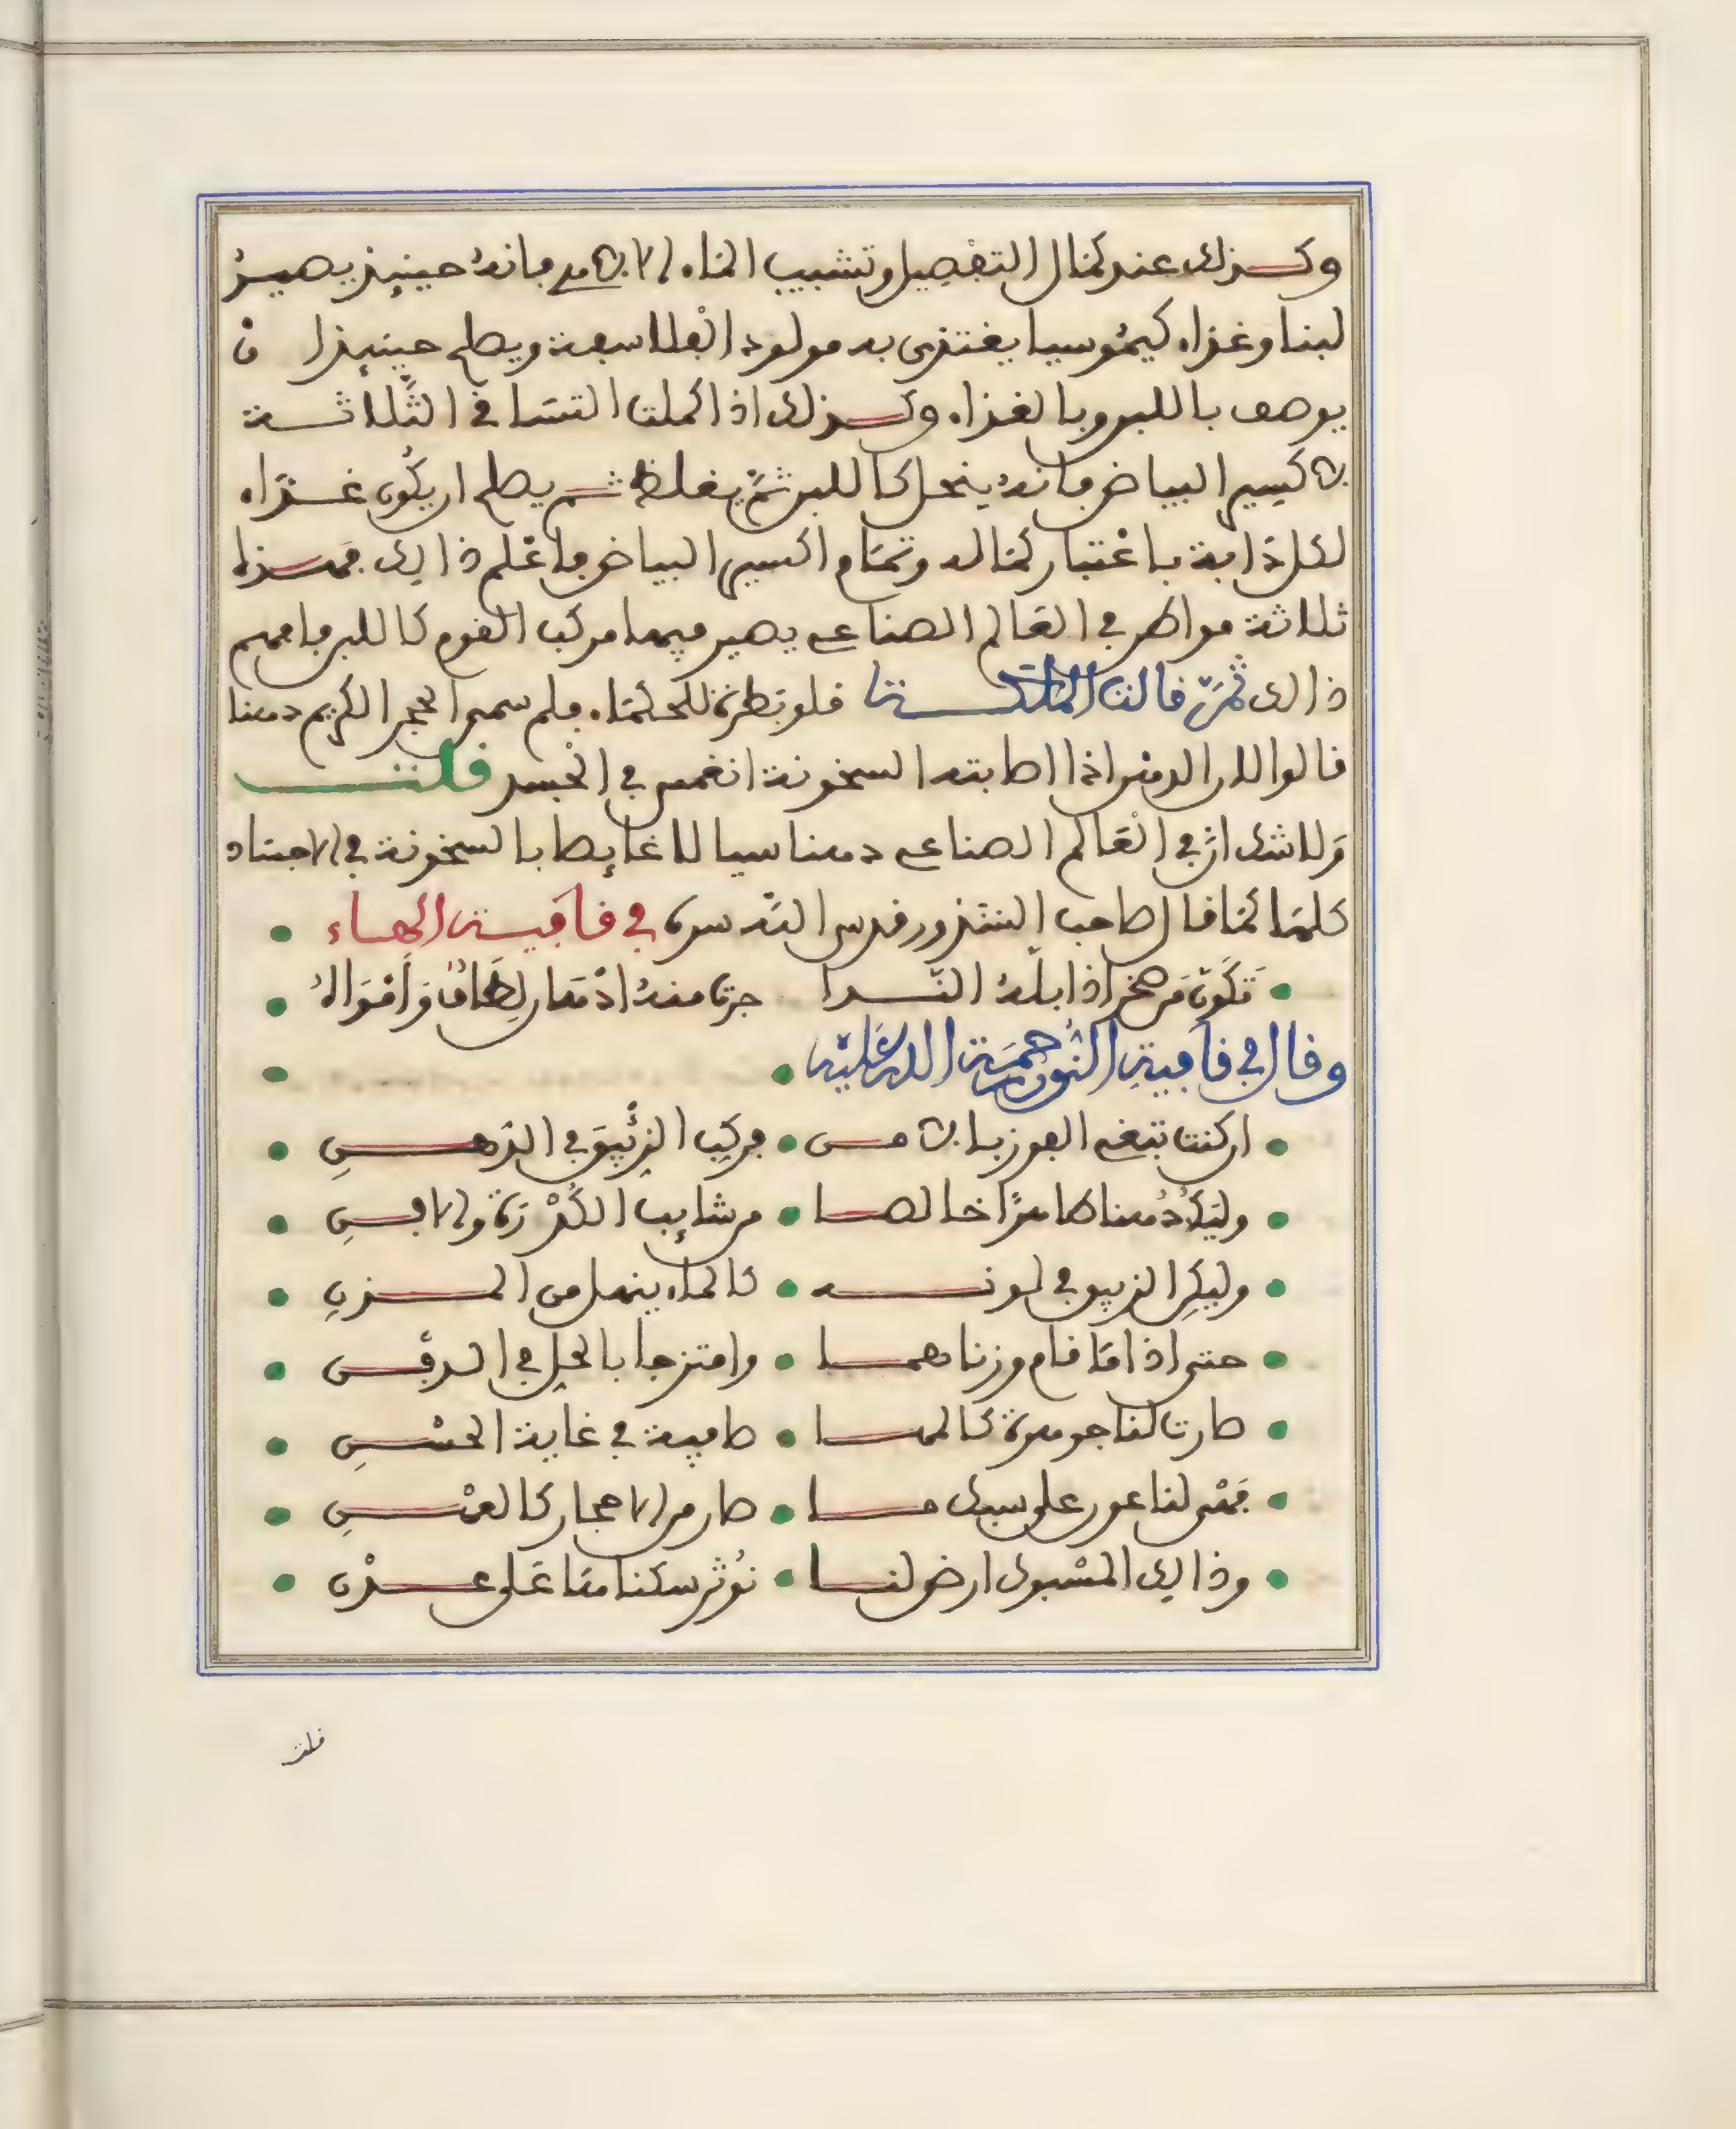 وكذلك عند كمال التفصيل وتشبيب الماء الالاهي فانه حينئذ يصير
لبنا وغذاء كيموسيا يغتذي به مولود الفلاسفة ويصلح حينئذ ان
يوصف باللبن وبالغذاء وكذلك اذا كملت التساقي الثلاثة
لاكسير البياض فانه ينحل كاللبن ثم يغلظ ثم يصلح ان يكون غذاء
لكل ذايبة باعتبار كماله وتمام اكسير البياض فاعلم ذالك فهذا
ثلاثة مواطن في العالم الصناعي يصير فيها مركب القوم كاللبن فافهم
ذالك ثمّ قالت الملكة فلو نظرة للحكماء فلم سمى الحجر الكريم دهنا
قالوا لان الدهن اذا اصابته السخونة انغمس في الجسد قلت
ولا شك ان في العالم الصناعي دهنا سيالا غايصا بالسخونة في الاجساد
كلها كما قال صاحب الشذور قدس الله سره في قافية الهاء
تكون من صخر اذا بله الندا جرت منه ادهان لطاف وامواه
وقال في قافية النون رحمة الله عليه
ان كنت تبغي الفوز بالامن فركب الزئبق في الدهن
وليك دهنا طاهرا خالصا من شايب الكدرة والافن
وليكن الزيبق في لونه كالماء ينهل من المزن
حتى اذا ما قام وزناهما وامتزجا بالحل في الدفن
صارت لنا جوهرة كالمها صافية في غاية الحسن
فهي لنا عون على سبك ما صار من الاحجار كالعهن
وذالك المسبوك ارض لنا نوثر سكناها على عدن
قلت